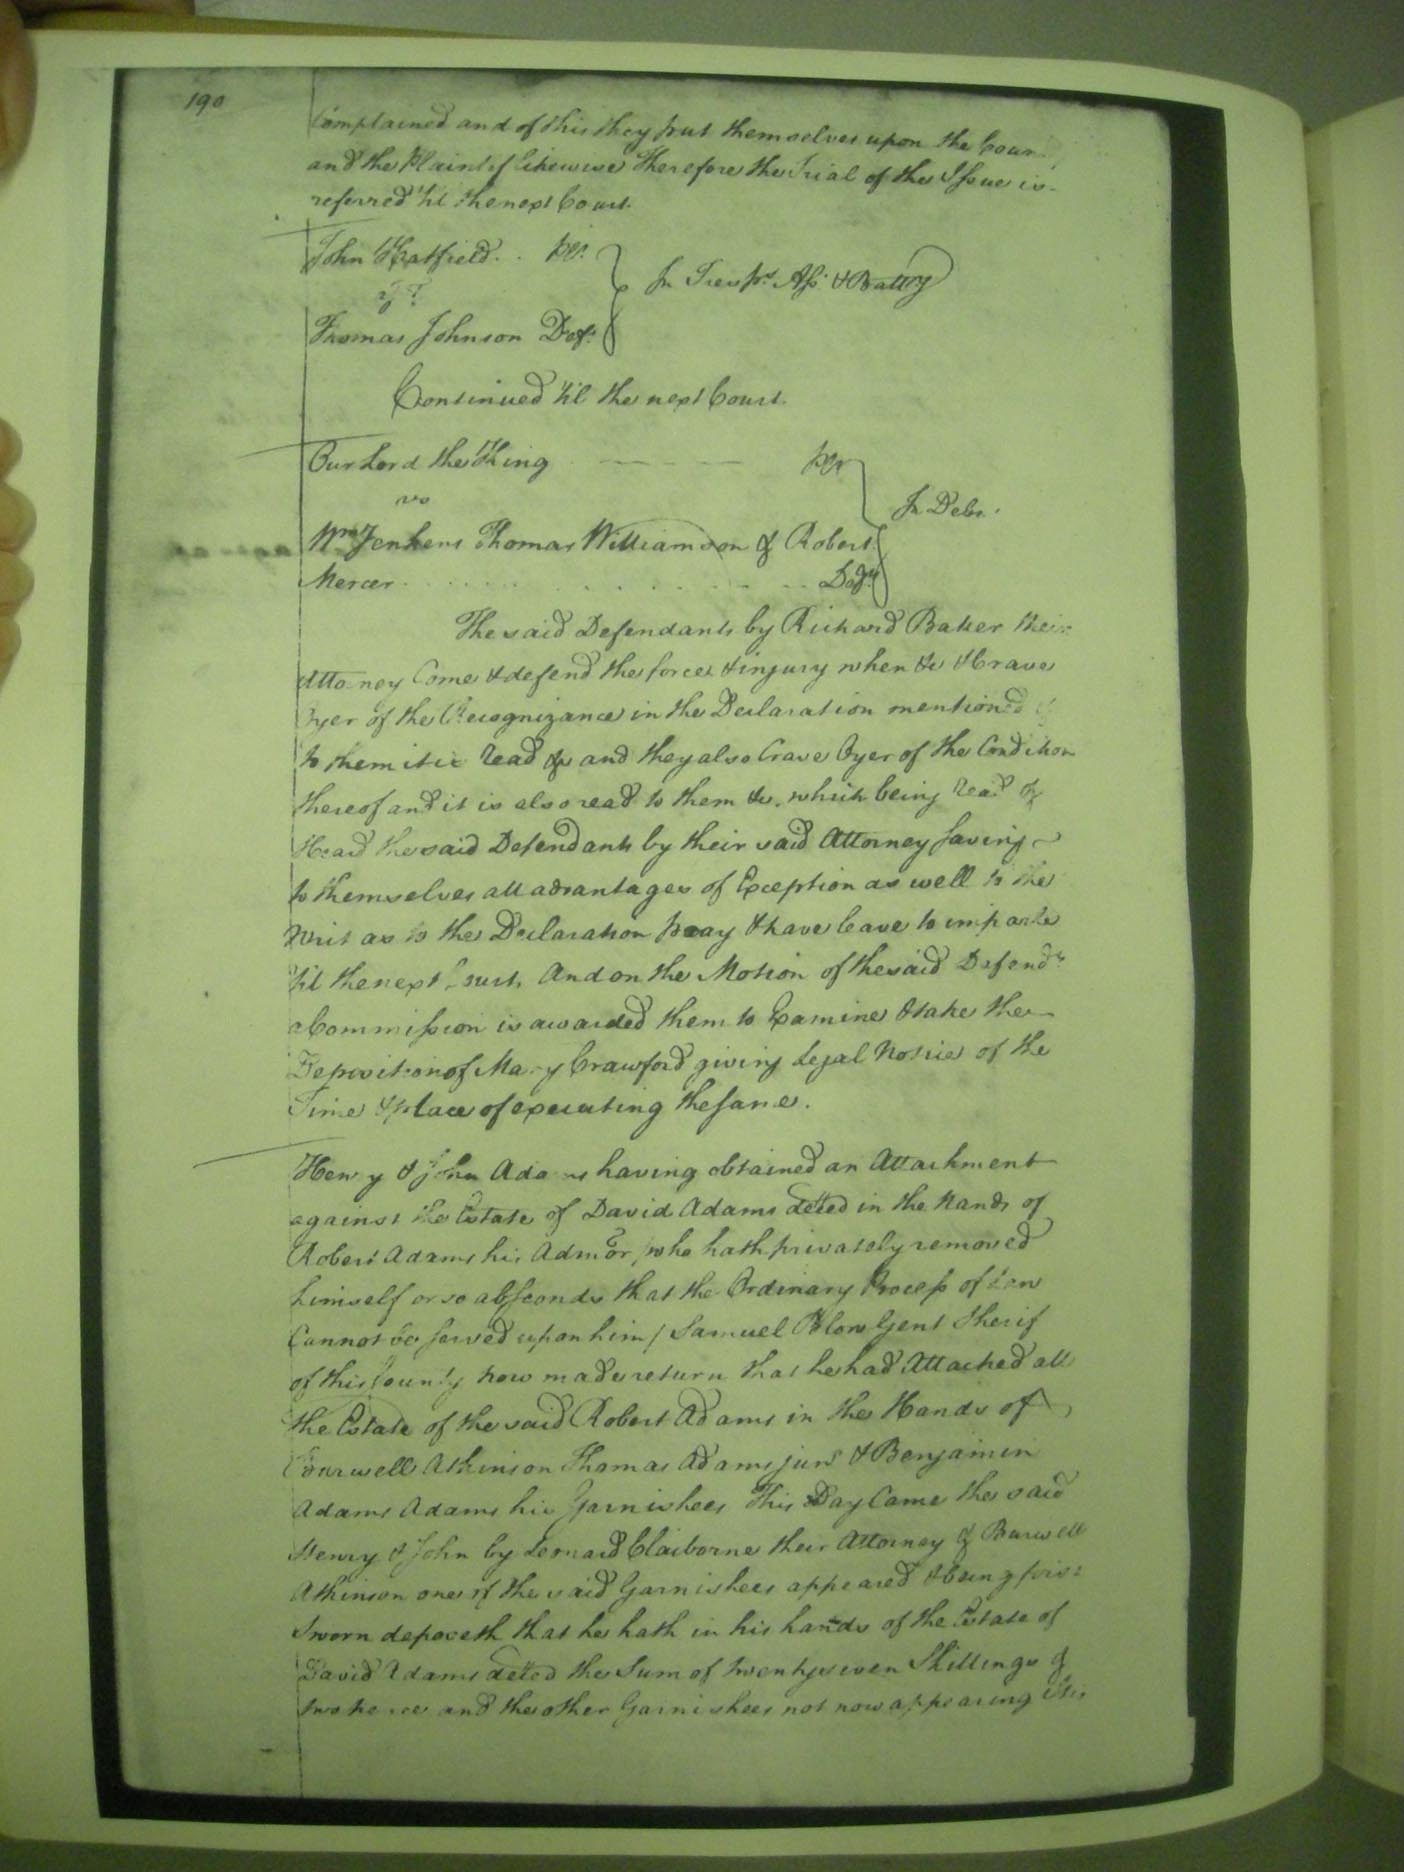 190
Complained and of this they put themselves upon the Coun
and the Plaintif likewise Therefore the Trial of the Issue is
referred 'til the next Court.
John Hatfield . . plt.
Thomas Johnson Deft.
In Tresps. Asst. & Battry
Continued 'til the next Court.
Our Lord the King plt
vs
In Debt.
Wm Jenkens Thomas Williamson & Robert
Mercer Defts.
The said Defendants by Richard Baker their
Attorney Come & defend the force & injury when &c & Crave
Oyer of the Recognizance in the Declaration mentioned &
to them it is read &c and they also Crave Oyer of the Condition
thereof and it is also read to them &c. which being read &
Heard the said Defendants by their said Attorney saving
to themselves all advantages of Exception as well to the
Writ as to the Declaration pray & have leave to imparle
'til the next Court, And on the Motion of the said Defendts.
a Commission is awarded them to Examine & take the
Deposition of Mary Crawford giving Legal Notice of the
Time & place of executing the same.
Henry & John Adams having obtained an Attachment
against the Estate of David Adams deced in the Hands of
Robert Adams his Admor, who hath privately removed
himself or so absconds that the Ordinary Process of Law
Cannot be served upon him / Samuel Blow Gent Sherif
of this County now made return that he had Attached all
the Estate of the said Robert Adams in the Hands of
Burwell Atkinson Thomas Adams junr & Benjamin
Adams Adams his Garnishees This Day Came the said
Henry & John by Leonard Claiborne their Attorney & Burwell
Atkinson one of the said Garnishees appeared & being first
Sworn deposeth that he hath in his hands of the Estate of
David Adams deced the Sum of twenty seven Shillings &
two pence and the other Garnishees not now appearing it is